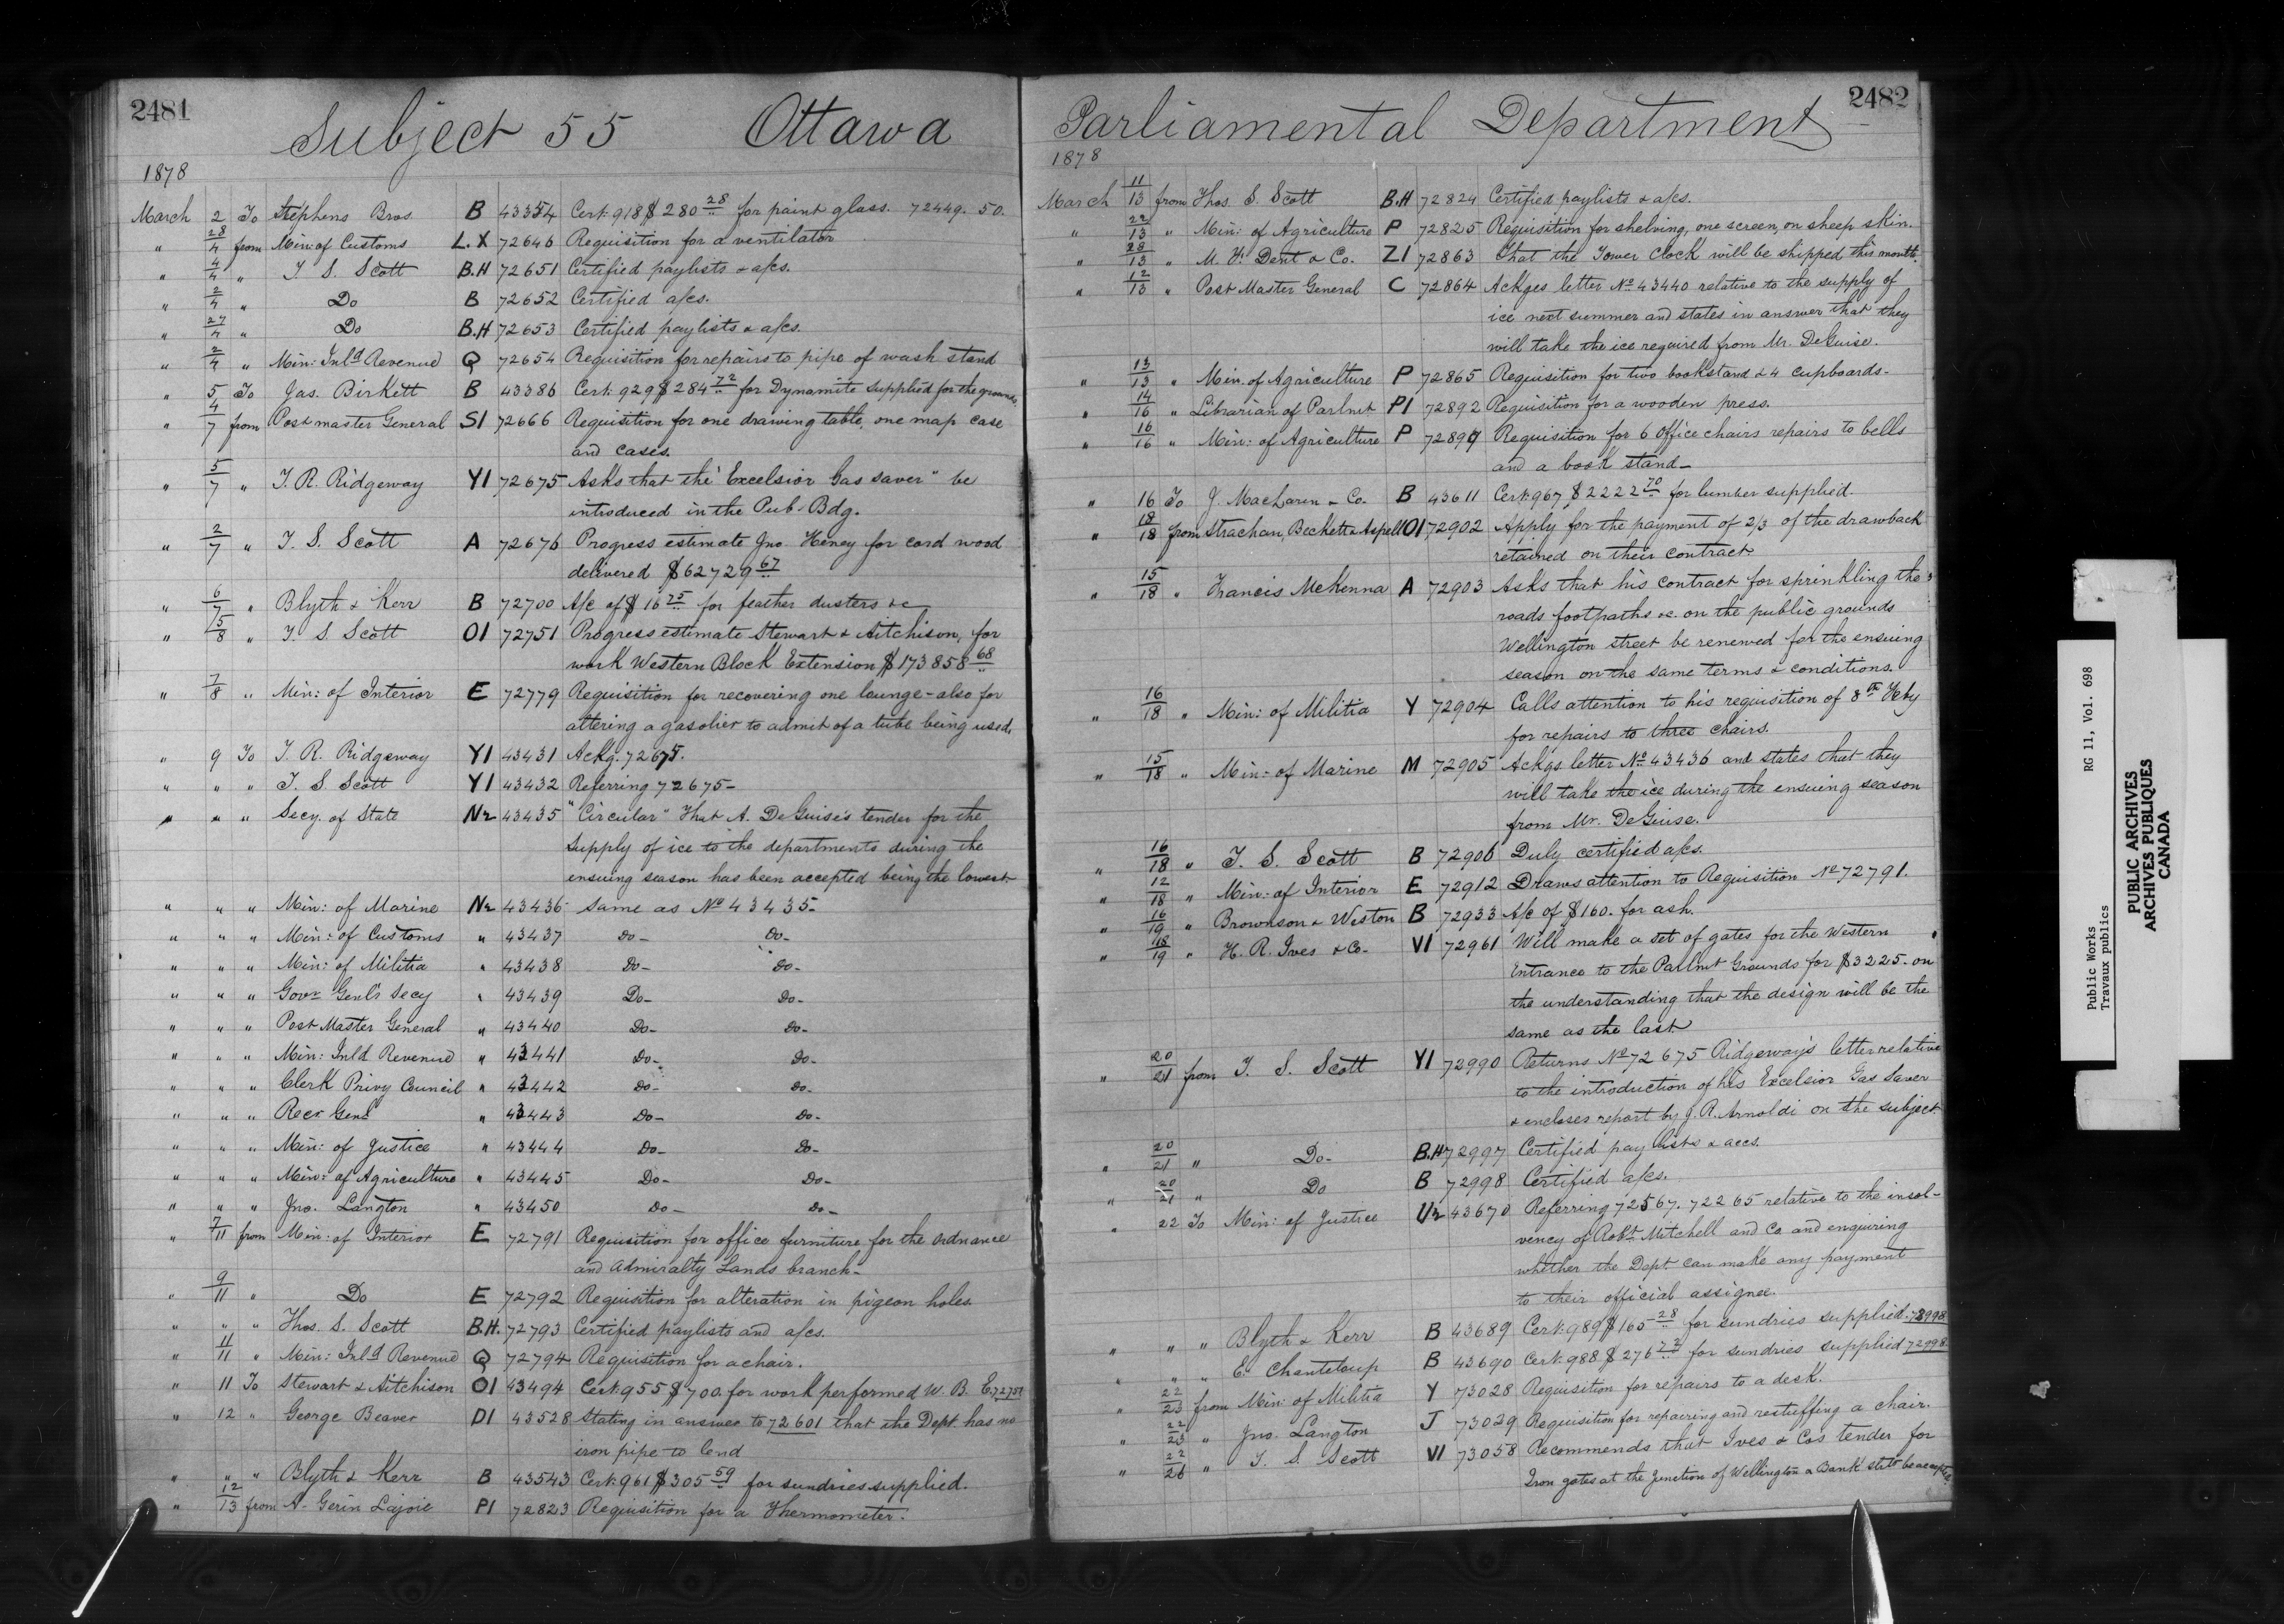 2481
Subject 55 Ottawa
1878
March 2 To Stephens Bros B 43354 Cert: 918 $ 280 28 for paint glass. 72449. 50.
" 28/4 from Min: of Customs L.X 72646 Requisition for a ventilator
" 4/4 " T S. Scott B.H 72651 Certified paylists & a/cs.
" 2/4 " Do B 72652 Certified a/cs.
" 27/4 " Do B.H 72653 Certified paylists & a/cs.
" 2/4 " Min: Inld Revenue Q 72654 Requisition for repairs to pipe of wash stand
" 5 To Jas. Birkett B 43386 Cert: 929 $ 284 72 for Dynamite supplied for the grounds.
" 4/7 from Post master General S1 72666 Requisition for one drawing table, one map case
and cases.
" 5/7 " T. R. Ridgeway Y1 72675 Asks that the "Excelsior Gas Saver" be
introduced in the Pub. Bdg.
" 2/7 " T. S. Scott A 72676 Progress estimate Jno. Heney for cord wood
delivered $62729 67
" 6/7 " Blyth & Kerr B 72700 A/c of $ 16 75 for feather dusters &c
" 5/8 " T S Scott O1 72751 Progress estimate Stewart & Aitchison, for
work Western Block Extension $173858 68
" 7/8 " Min: of Interior E 72779 Requisition for recovering one lounge - also for
altering a gasolier to admit of a tube being used.
" 9 To T. R. Ridgeway Y1 43431 Ackg. 72675.
" " " T. S. Scott Y1 43432 Referring 72675-
" " " Secy. of State N2 43435 "Circular" That A. DeGuise's tender for the
supply of ice to the departments during the
ensuing season has been accepted being the lowest-
" " " Min: of Marine N2 43436 same as No 43435-
" " " Min: of Customs " 43437 Do- Do-
" " " Min: of Militia " 43438 Do- Do-
" " " Govr Genl's Secy " 43439 Do- Do-
" " " Post Master General " 43440 Do- Do-
" " " Min: Inld Revenue " 43441 Do- Do-
" " " Clerk Privy Council " 43442 Do- Do-
" " " Recr Genl " 43443 Do- Do-
" " " Min: of Justice " 43444 Do- Do-
" " " Min: of Agriculture " 43445 Do- Do-
" " " Jno. Langton " 43450 Do- Do-
" 7/11 from Min: of Interior E 72791 Requisition for office furniture for the Ordnance
and Admiralty Lands branch-
" 9/11 " Do E 72792 Requisition for alteration in pigeon holes.
" " " Thos. S. Scott B.H. 72793 Certified paylists and a/cs.
" 11/11 " Min: Inld Revenue Q 72794 Requisition for a chair.
" 11 To Stewart & Aitchison O1 43494 Cert: 955 $700. for work performed W. B. E. 72751
" 12 " George Beaver D1 43528 Stating in answer to 72601 that the Dept. has no
iron pipe to lend
" " " Blyth & Kerr B 43543 Cert: 961 $305 59 for sundries supplied.
" 12/13 from A. Gerin Lajoie P1 72823 Requisition for a Thermometer.
2482
Parliamental Department
1878
March 11/13 from Thos. S. Scott B.H 72824 Certified paylists & a/cs.
" 22/13 " Min: of Agriculture P 72825 Requisition for shelving, one screen, on sheep skin.
" 28/13 " M. F. Dent & Co. Z1 72863 That the Tower Clock will be shipped this month.
" 12/13 " Post Master General C 72864 Ackges letter No 43440 relative to the supply of
ice next summer and states in answer that they
will take the ice required from Mr. DeGuise.
" 13/13 " Min. of Agriculture P 72865 Requisition for two bookstand & 4 cupboards-
" 14/16 " Librarian of Parlmt P1 72892 Requisition for a wooden press.
" 16/16 " Min: of Agriculture P 72899 Requisition for 6 Office chairs repairs to bells
and a book stand-
" 16 To J. MacLaren & Co. B 43611 Cert: 967, $2222 70 for lumber supplied-
" 18/18 from Strachan, Beckett & Aspell O1 72902 Apply for the payment of 2/3 of the drawback
retained on their contract
" 15/18 " Francis McKenna A 72903 Asks that his contract for sprinkling the
roads footpaths &c. on the public grounds
Wellington street be renewed for the ensuing
season on the same terms & conditions.
" 16/18 " Min: of Militia Y 72904 Calls attention to his requisition of 8th Feby
for repairs to three chairs.
" 15/18 " Min: of Marine M 72905 Ackgs letter No 43436 and states that they
will take the ice during the ensuing season
from Mr. DeGuise.
" 16/18 " T. S. Scott B 72906 Duly certified a/cs.
" 12/18 " Min: of Interior E 72912 Draws attention to Requisition No 72791.
" 16/19 " Brownson & Weston B 72933 A/c of $160. for ash.
" 18/19 " H. R. Ives & Co- V1 72961 Will make a set of gates for the Western
Entrance to the Parlmt Grounds for $3225- on
the understanding that the design will be the
same as the last
" 20/21 from T. S. Scott Y1 72990 Returns No 72675 Ridgeway's letter relative
to the introduction of his Excelsior Gas Saver
& encloses report by J. R. Arnoldi on the subject
" 20/21 " Do- B.H 72997 Certified pay lists & accs.
" 20/21 " Do B 72998 Certified a/cs.
" 22 To Min: of Justice U2 43670 Referring 72567. 72265 relative to the insol-
vency of Robt Mitchell and Co and enquiring
whether the Dept. can make any payment
to their official assignee.
" " " Blyth & Kerr B 43689 Cert: 989 $165 28 for sundries supplied. 72998
" " " E. Chanteloup B 43690 Cert: 988 $276 72 for sundries supplied 72998
" 22/23 from Min: of Militia Y 73028 Requisition for repairs to a desk.
" 22/23 " Jno. Langton J 73029 Requisition for repairing and restuffing a chair.
" 22/26 " T. S. Scott V1 73058 Recommends that Ives & Co's tender for
Iron gates at the Junction of Wellington & Bank sts to be accepted
Public Works
Travaux publics
RG 11, Vol. 698
PUBLIC ARCHIVES
ARCHIVES PUBLIQUES
CANADA